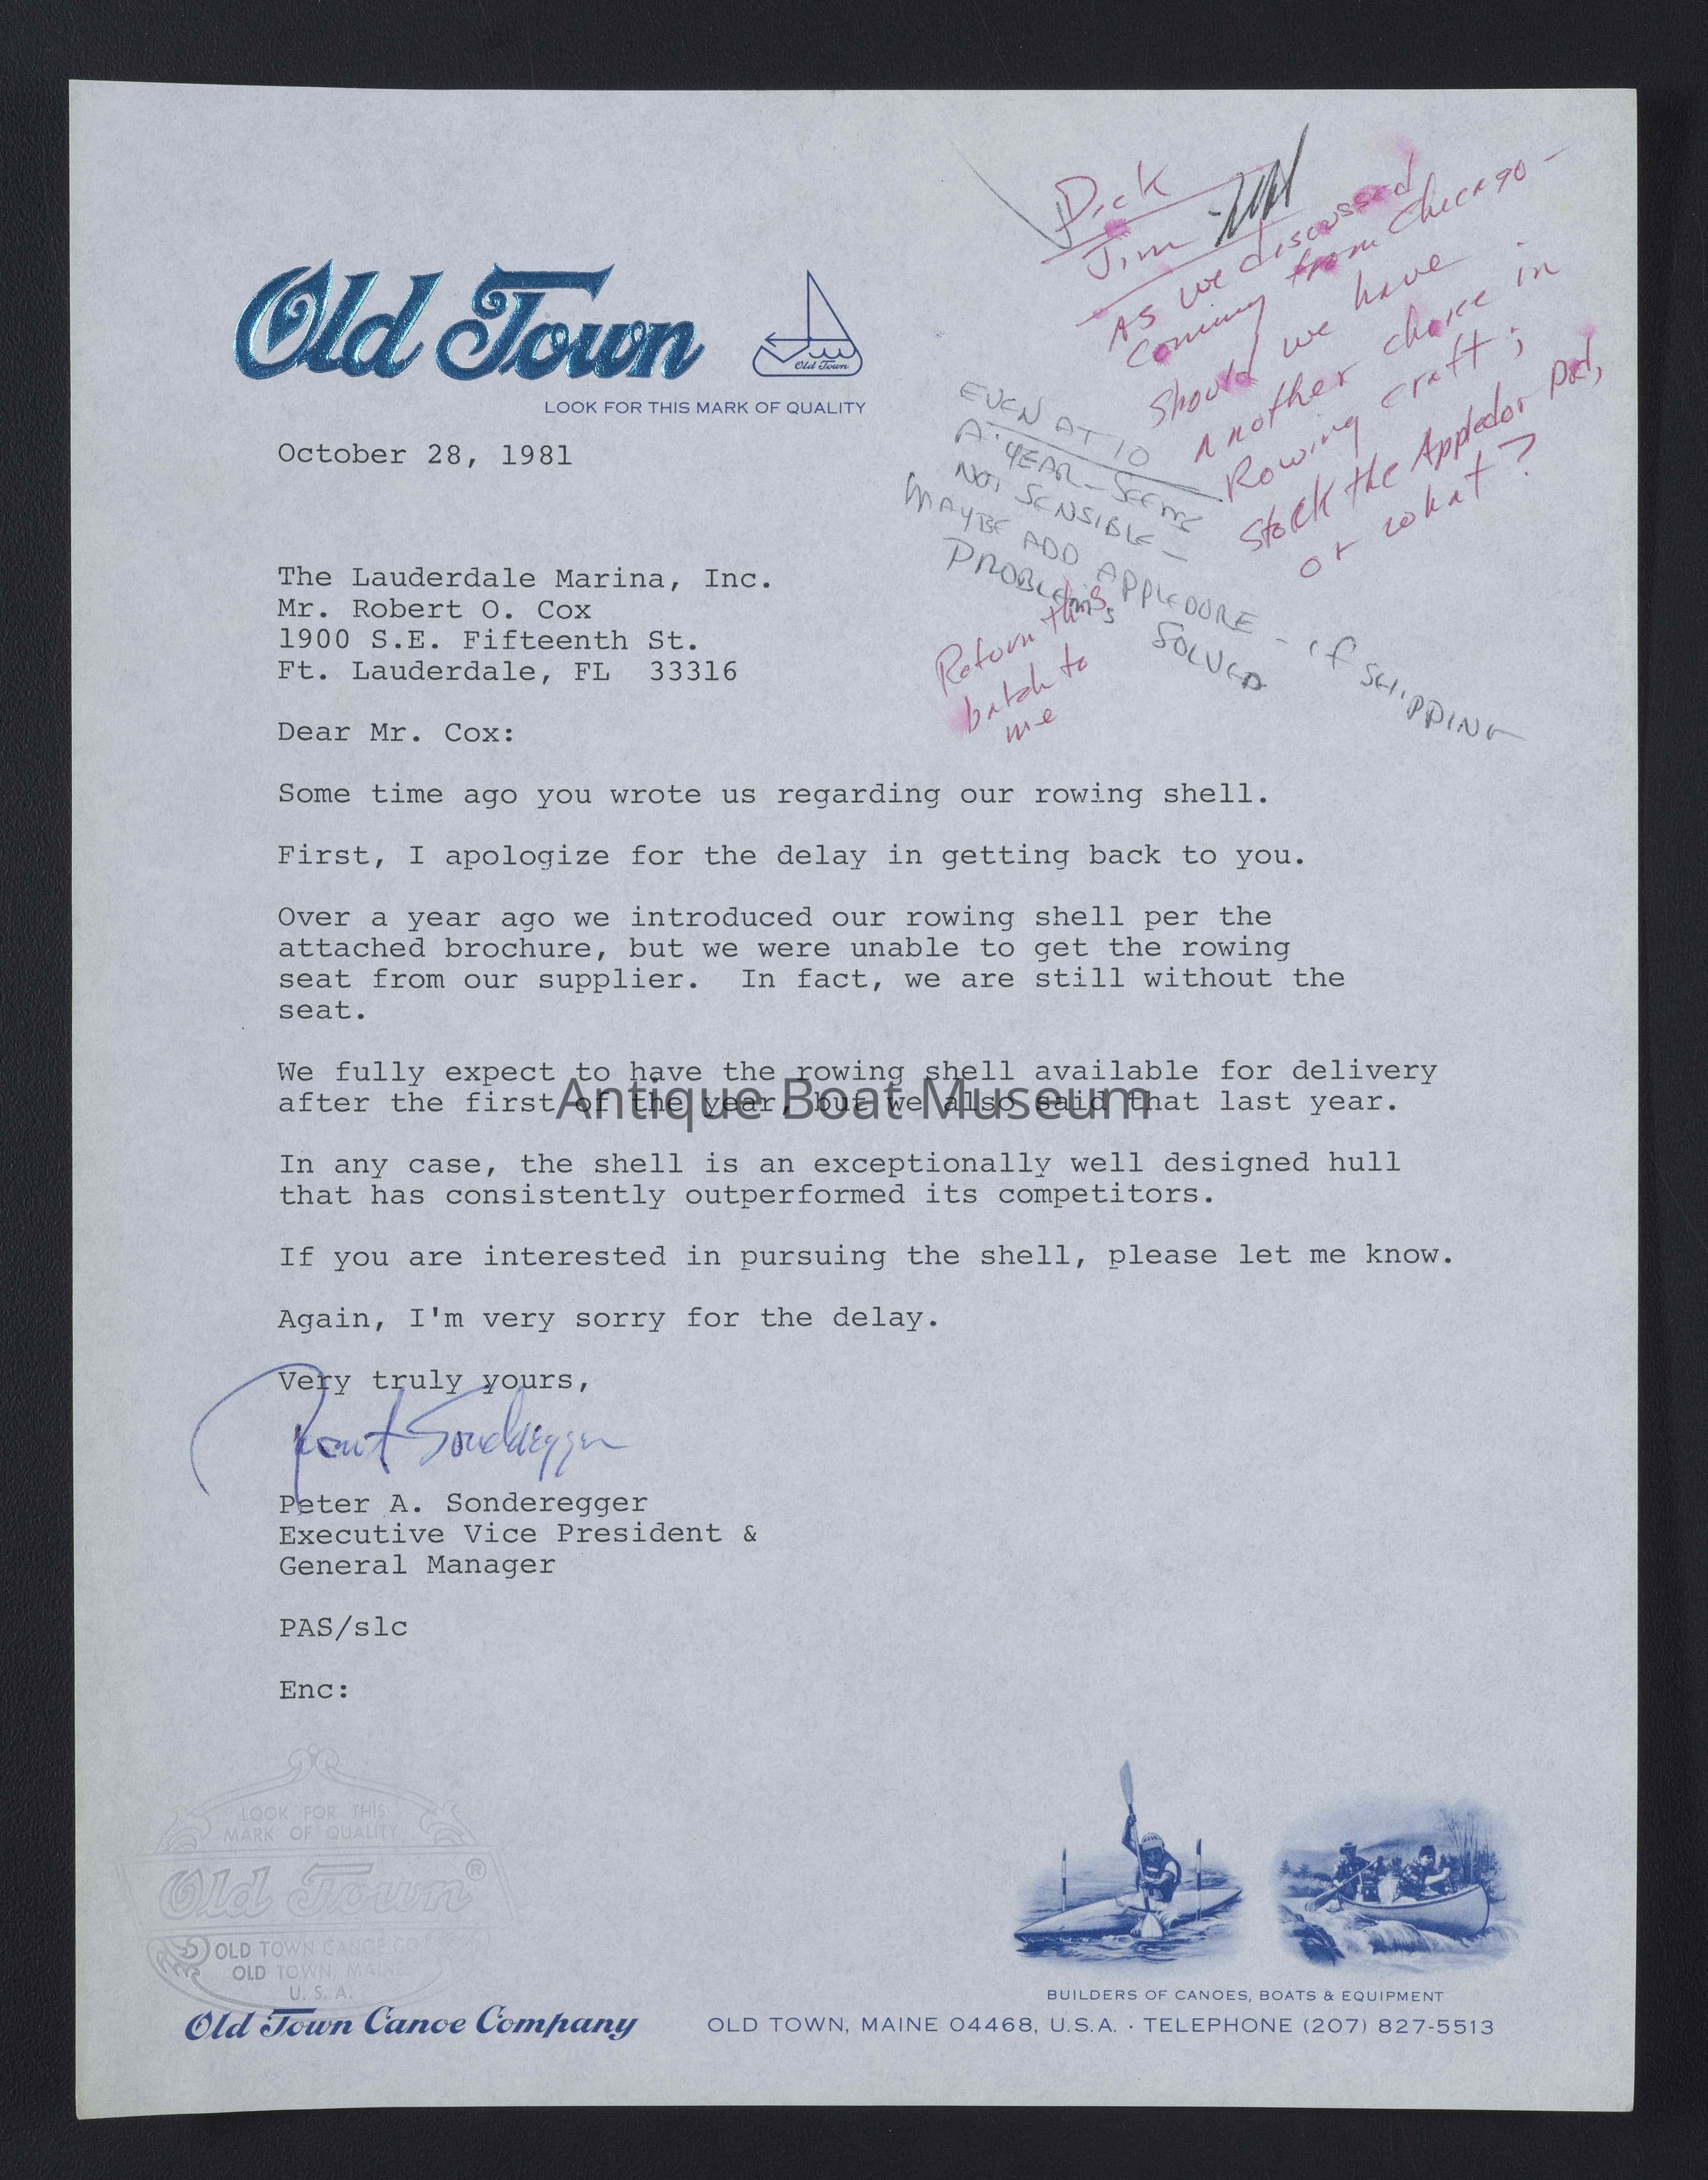 Dick
Jim
As we discussed
coming from Chicago -
Should we have
another choice in
Rowing craft;
Stock the Appledor pod,
or what?
EVEN AT 10
A YEAR - SEEMS
NOT SENSIBLE -
MAYBE ADD APPLEDORE - IF SHIPPING
PROBLEMS SOLVED
Return this
batch to
me
Old Town
Old Town
LOOK FOR THIS MARK OF QUALITY
October 28, 1981
The Lauderdale Marina, Inc.
Mr. Robert O. Cox
1900 S.E. Fifteenth St.
Ft. Lauderdale, FL 33316
Dear Mr. Cox:
Some time ago you wrote us regarding our rowing shell.
First, I apologize for the delay in getting back to you.
Over a year ago we introduced our rowing shell per the
attached brochure, but we were unable to get the rowing
seat from our supplier. In fact, we are still without the
seat.
We fully expect to have the rowing shell available for delivery
after the first of the year, but we also said that last year.
Antique Boat Museum
In any case, the shell is an exceptionally well designed hull
that has consistently outperformed its competitors.
If you are interested in pursuing the shell, please let me know.
Again, I'm very sorry for the delay.
Very truly yours,
Peter A. Sonderegger
Executive Vice President &
General Manager
PAS/slc
Enc:
LOOK FOR THIS
MARK OF QUALITY
Old Town®
OLD TOWN CANOE CO
OLD TOWN, MAINE
U.S.A.
BUILDERS OF CANOES, BOATS & EQUIPMENT
Old Town Canoe Company OLD TOWN, MAINE 04468, U.S.A. · TELEPHONE (207) 827-5513